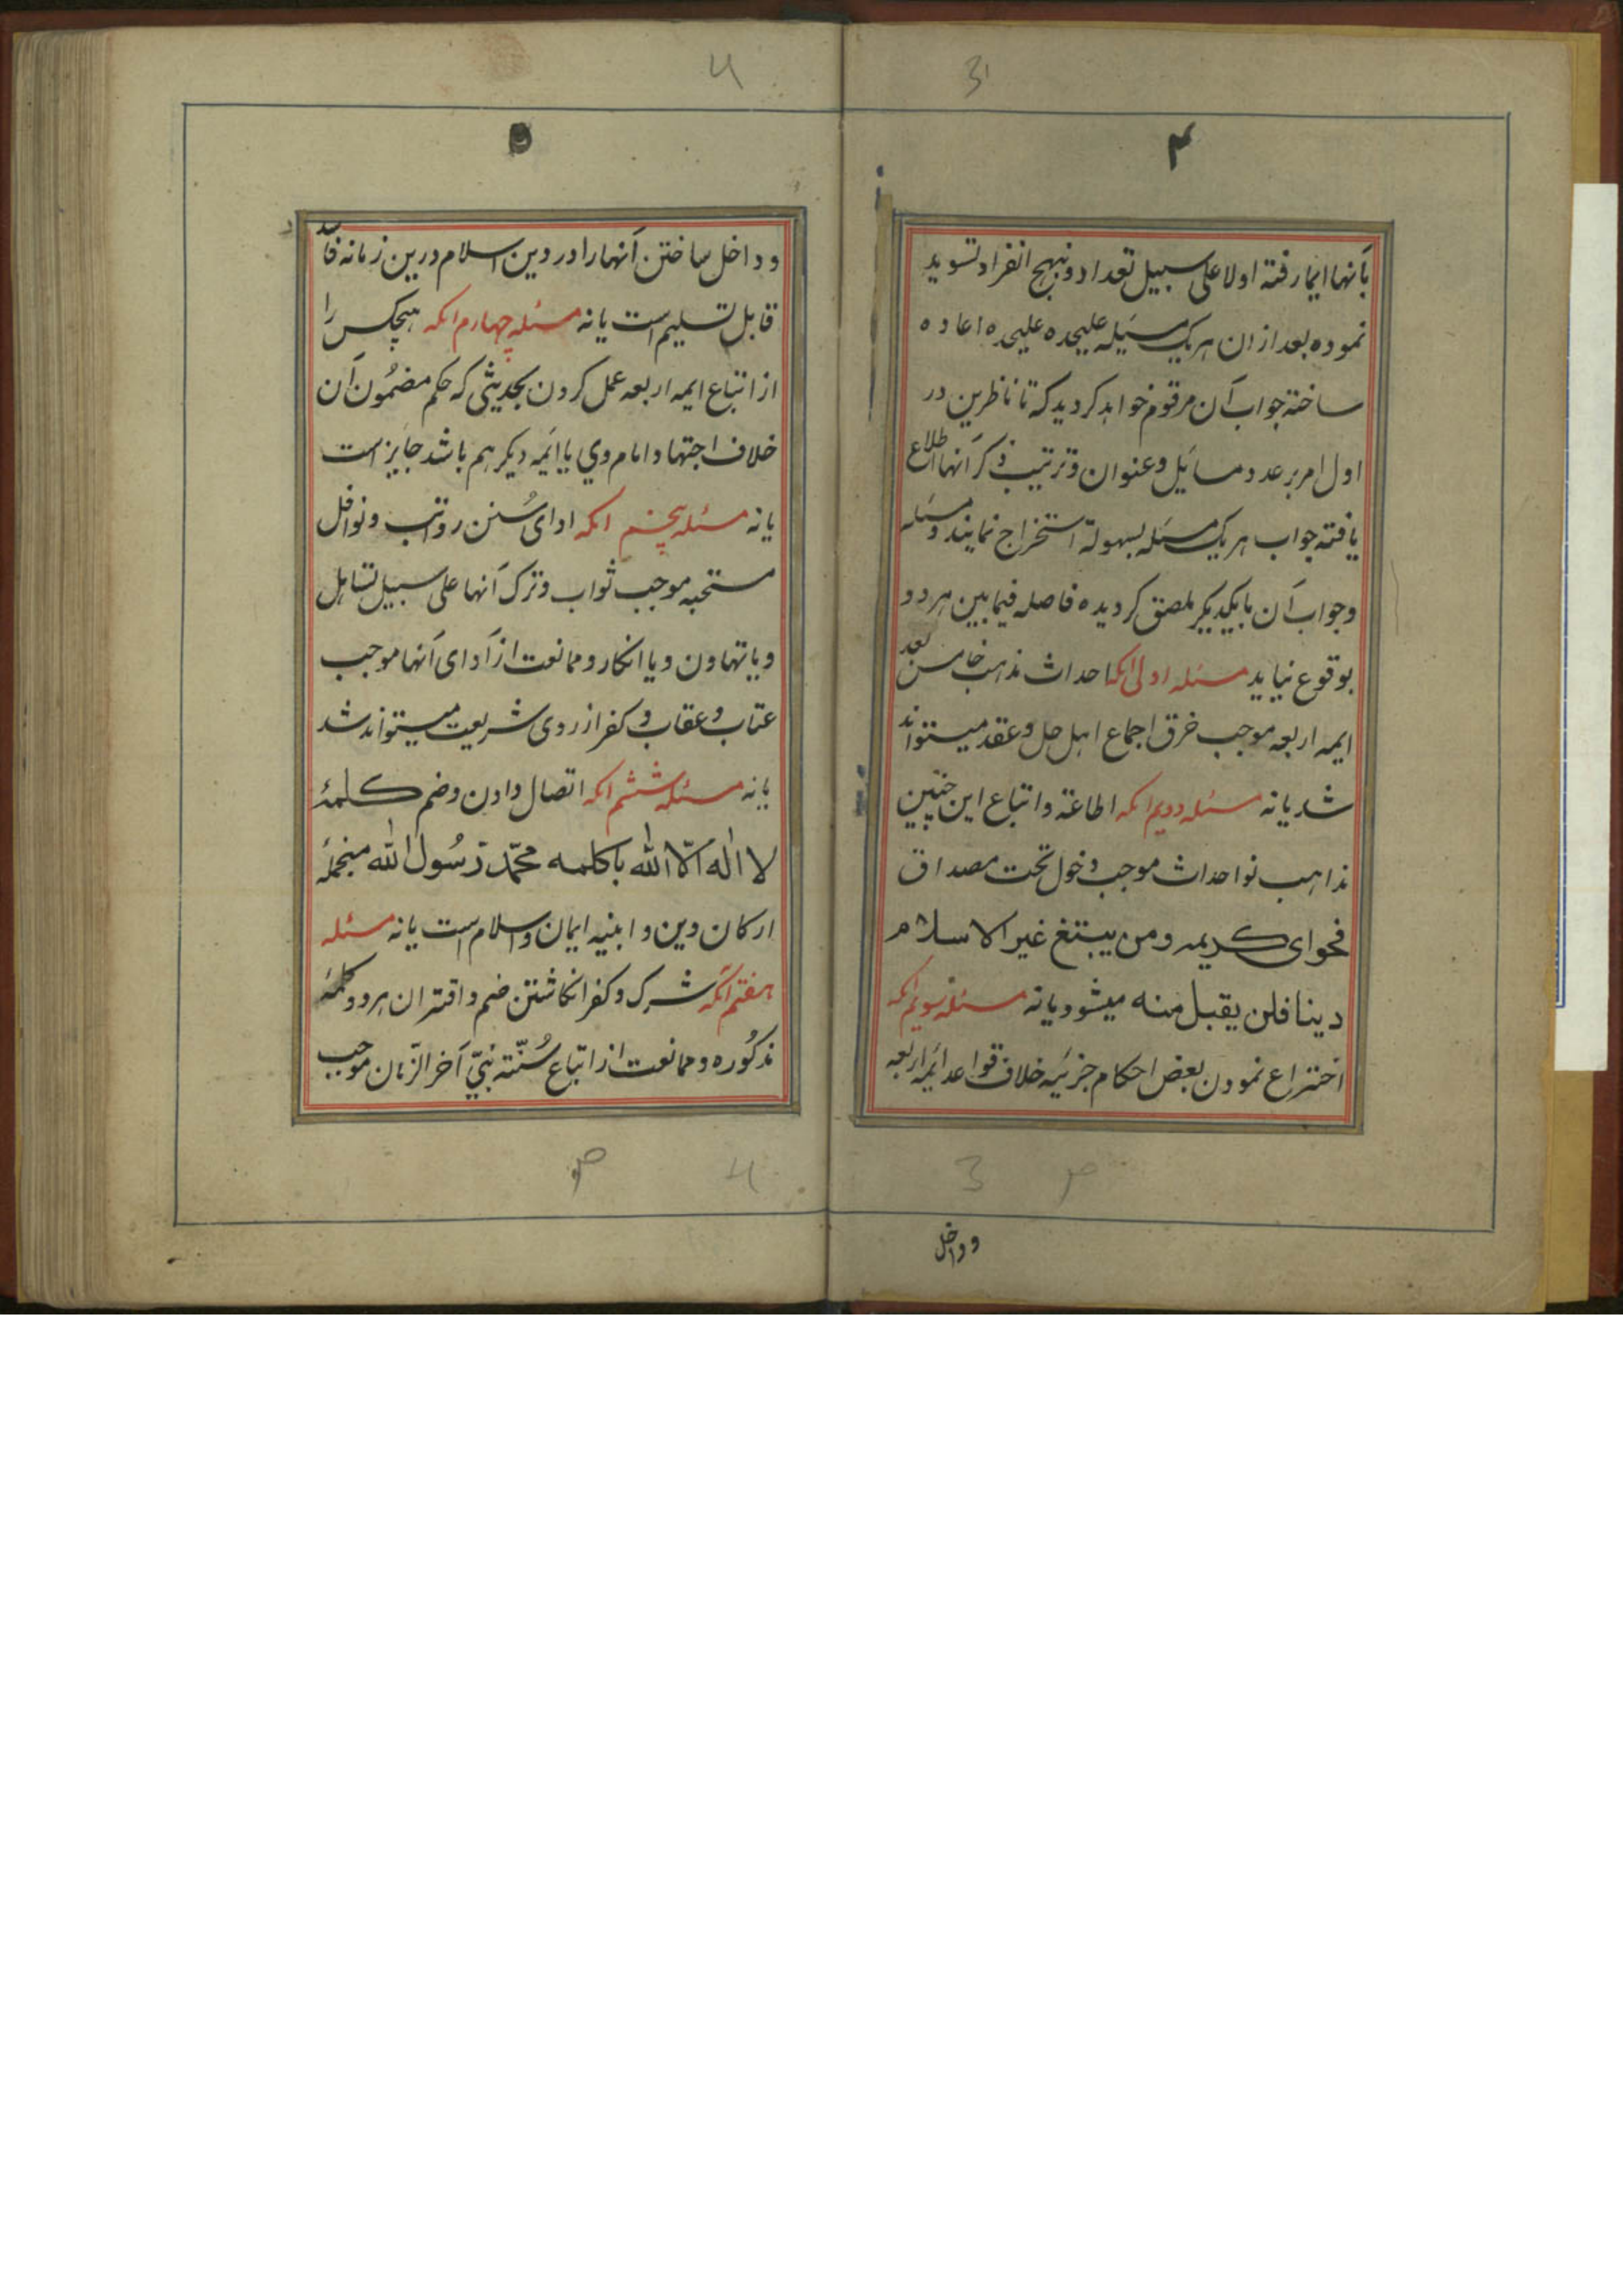 3
۴
بآنها ایما رفته اولا علی سبیل تعداد و نهج انفراد تسوید
نموده بعد ازان هر یک مسئله علیحده علیحده اعاده
ساخته جواب آن مرقوم خواهد کردید که تا ناظرین در
اول امر بر عدد مسائل و عنوان و ترتیب ذکر آنها اطلاع
یافته جواب هر یک مسئله بسهولة استخراج نمایند و مسئله
و جواب آن بایکدیکر ملصق کردیده فاصله فیما بین هر دو
بوقوع نیاید مسئله اولی انکه احداث مذهب خامس بعد
ایمه اربعه موجب خرق اجماع اهل حل و عقد میتواند
شد یا نه مسئله دویم انکه اطاعة و اتباع این چنین
مذاهب نو احداث موجب دخول تحت مصداق
فحوای کریمه ومن یبتغ غیر الاسلام
دینا فلن یقبل منه میشود یا نه مسئله سویم انکه
اختراع نمودن بعض احکام جزئیه خلاف قواعد ائمه اربعه
3
و داخل
4
۵
و داخل ساختن آنها را در دین اسلام درین زمانه
قابل تسلیم است یا نه مسئله چهارم انکه هیچکس را
از اتباع ایمه اربعه عمل کردن بحدیثی که حکم مضمون آن
خلاف اجتهاد امام وی یا ائمه دیکر هم باشد جایز است
یا نه مسئله پنجم انکه ادای سُنن رواتب و نوافل
مستحبه موجب ثواب و ترک آنها علی سبیل تساهل
و یا تهاون و یا انکار و ممانعت از آدای آنها موجب
عتاب و عقاب و کفر از روی شریعت میتواند شد
یا نه مسئله ششم انکه اتصال دادن و ضم کلمهٔ
لا اله الّا الله با کلمه محمّد رّسُول الله منجملهٔ
ارکان دین و ابنیه ایمان و اسلام است یا نه مسئله
هفتم آنکه شرک و کفر انکاشتن ضم و اقتران هر دو کلمهٔ
مذکُوره و ممانعت از اتباع سُنّته نبیّ آخر الزّمان موجب
4